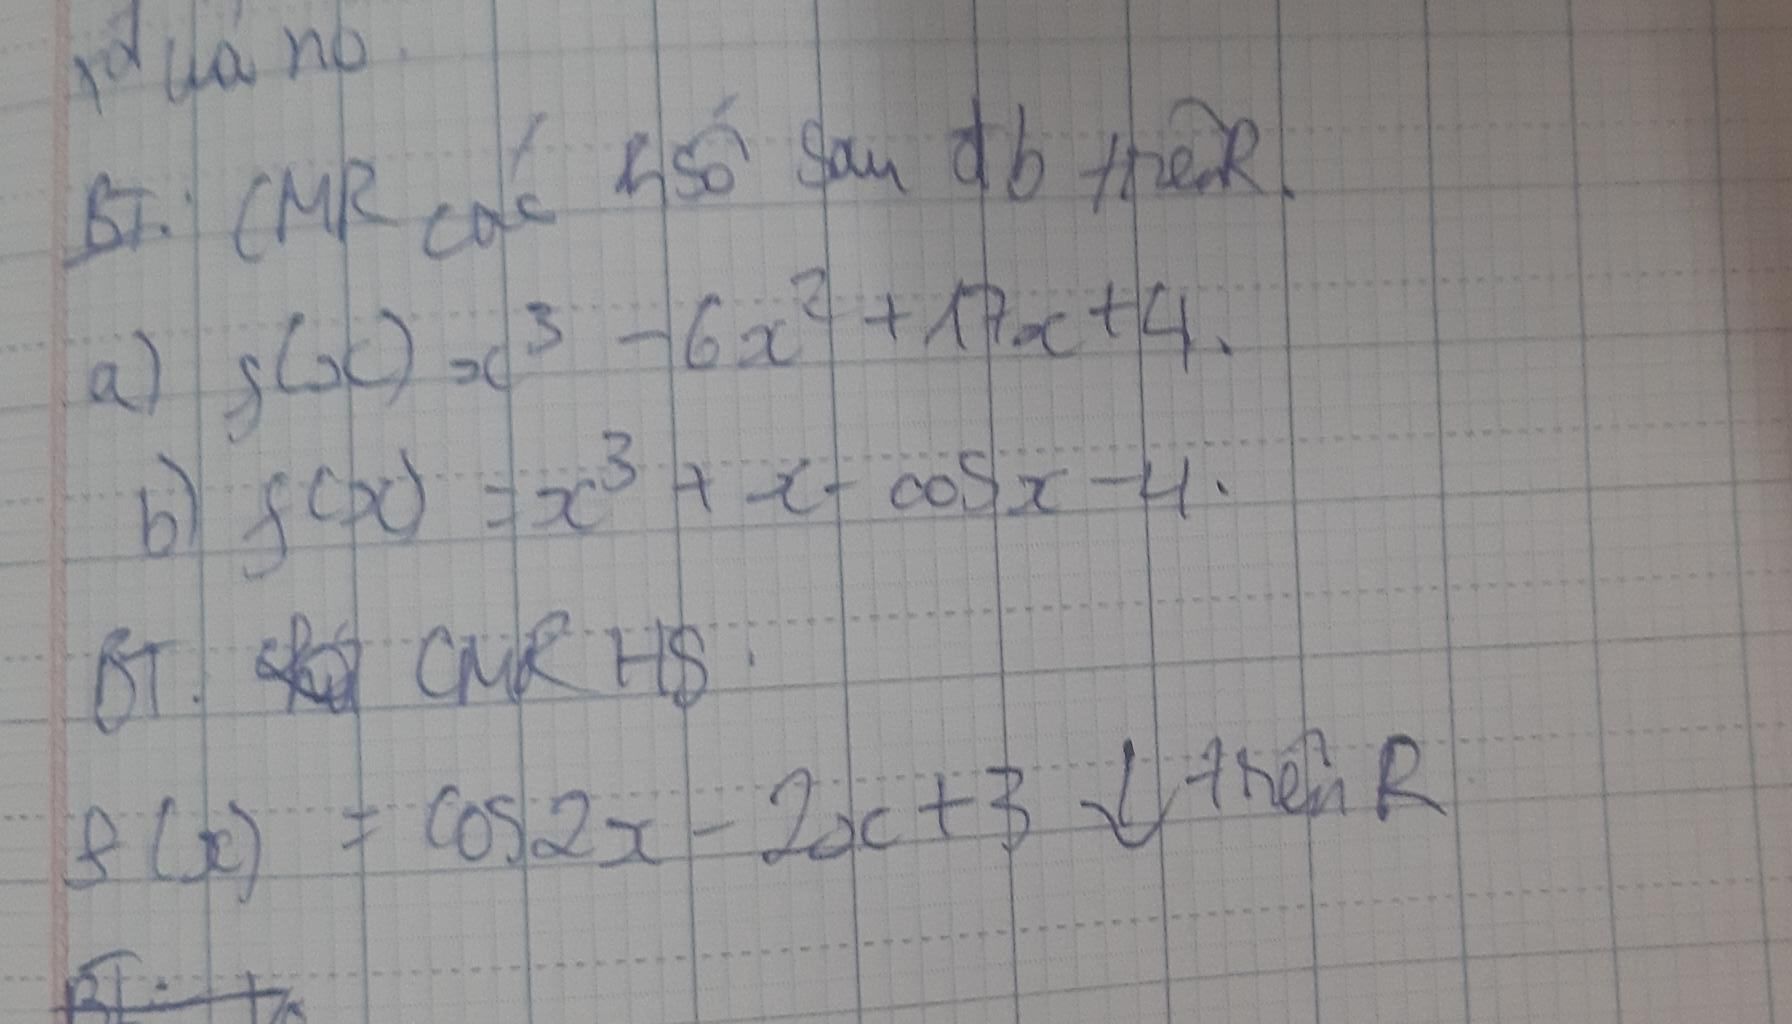 nó.
BT: CMR các hsố sau đb trên R.
a) f(x) = x³ - 6x² + 17x + 4.
b) f(x) = x³ + x - cosx - 4.
BT. CMR HS.
f(x) = cos2x - 2x + 3 ↓ trên R
BT: